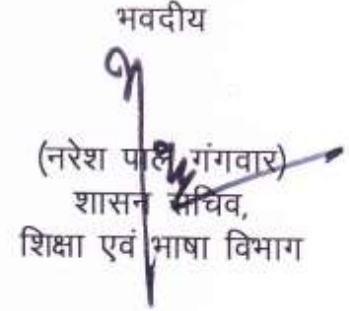 भवदीय
(नरेश पाल गंगवार)
शासन सचिव,
शिक्षा एवं भाषा विभाग